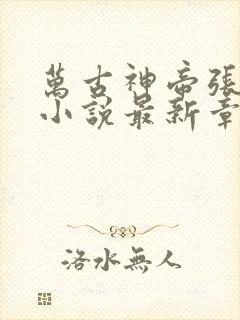 萬古神帝張
小說最新章
洛水無人